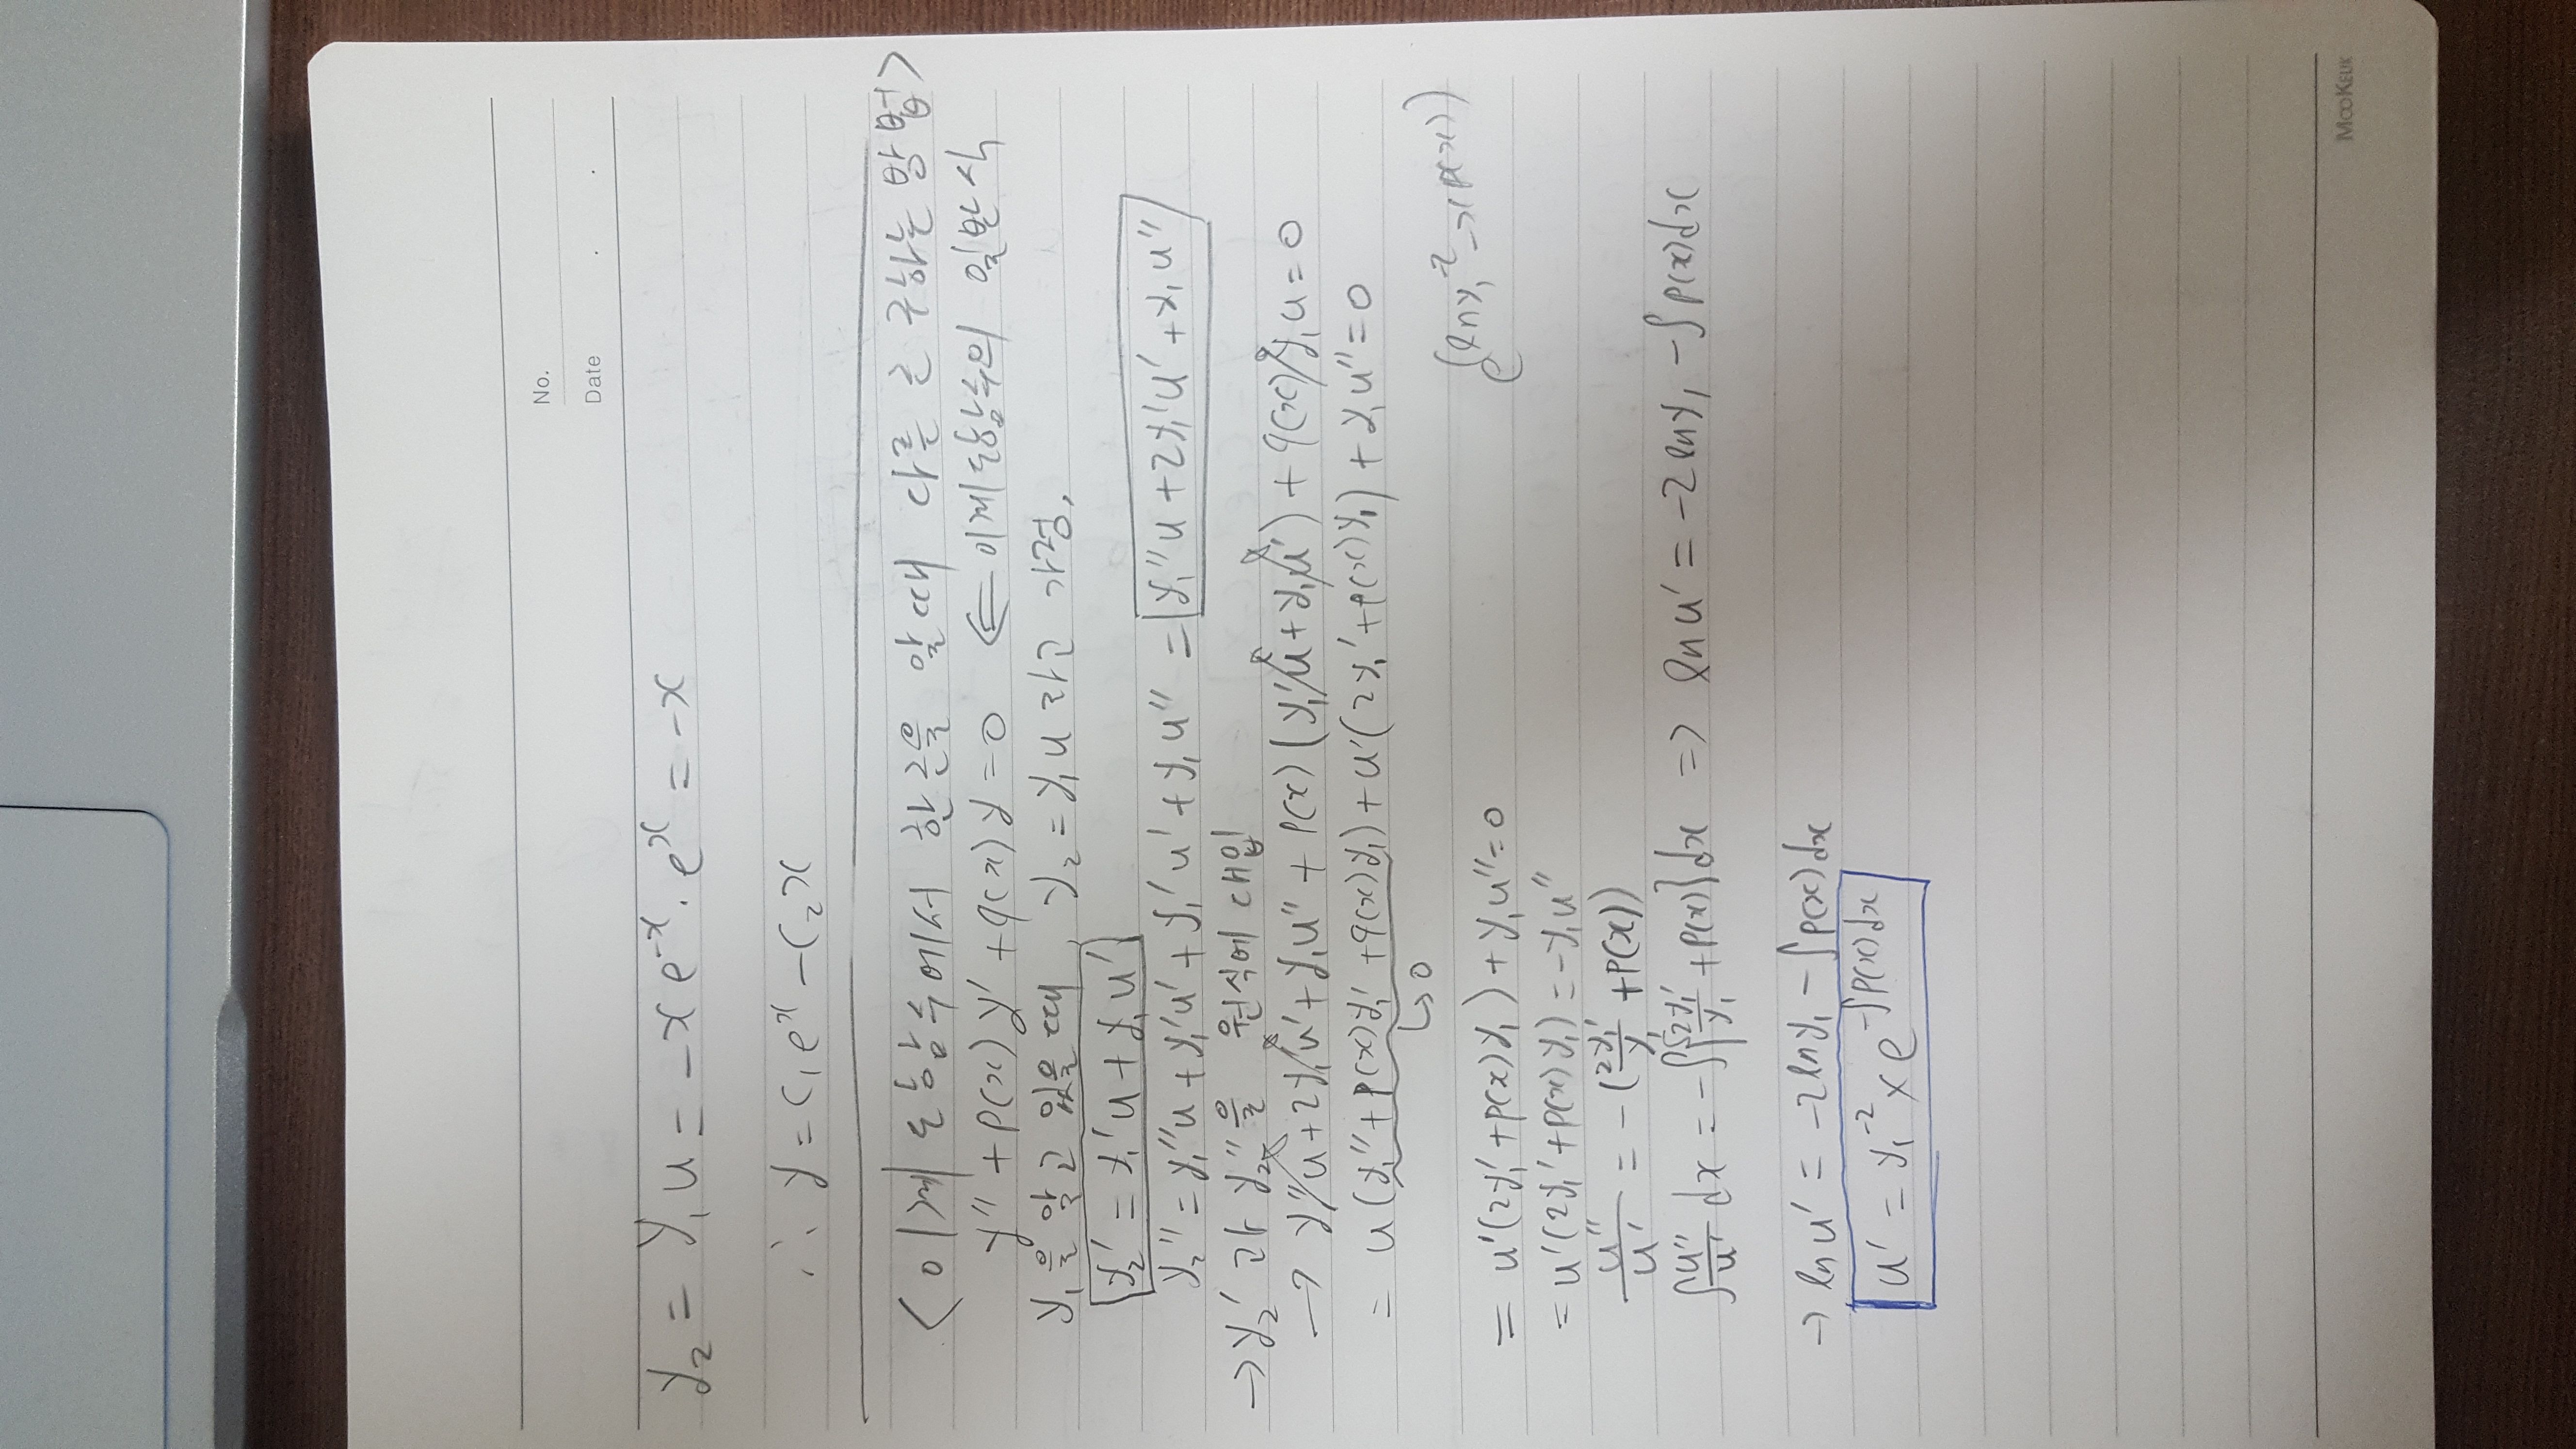 No.
Date . .
y₂ = y₁u = -xe⁻ˣ · eˣ = -x
∴ y = c₁eˣ - c₂x
<이계도함수에서 한근을 알때 다른 근 구하는 방법>
y'' + p(x)y' + q(x)y = 0 ⇐ 이계도함수의 일반식
y₁을 알고 있을때, y₂ = y₁u 라고 가정.
y₂' = y₁'u + y₁u'
y₂'' = y₁''u + y₁'u' + y₁'u' + y₁u'' = y₁''u + 2y₁'u' + y₁u''
→ y₂' 과 y₂''을 원식에 대입
→ y''u + 2y₁'u' + y₁u'' + p(x)(y₁'u + y₁u') + q(x)y₁u = 0
= u(y₁'' + p(x)y₁' + q(x)y₁) + u'(2y₁' + p(x)y₁) + y₁u'' = 0
↳ 0
e^(ln y₁⁻² - x p(x))
= u'(2y₁' + p(x)y₁) + y₁u'' = 0
= u'(2y₁' + p(x)y₁) = -y₁u''
u''/u' = -(2y₁'/y₁ + p(x))
∫u''/u' dx = -∫{2y₁'/y₁ + p(x)}dx ⇒ ln u' = -2 ln y₁ - ∫p(x)dx
→ ln u' = -2 ln y₁ - ∫p(x)dx
u' = y₁⁻² × e^(-∫p(x)dx)
MOOKEUK